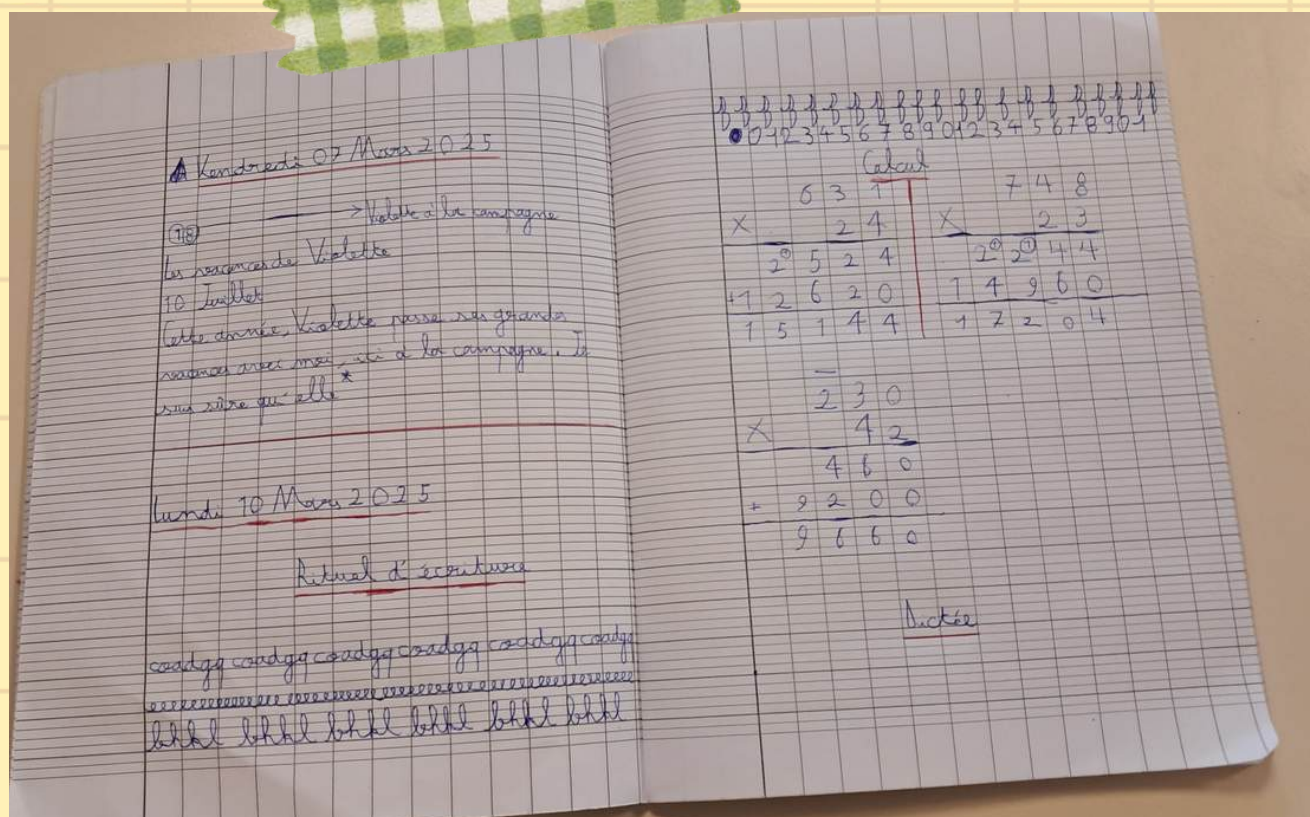 Vendredi 07 Mars 2025
18 → Violette à la campagne
Les vacances de Violette
10 Juillet
Cette année, Violette passe ses grandes
vacances avec moi, ici à la campagne. Je
suis sûre qu'elle*
Lundi 10 Mars 2025
Rituel d'écriture
coadgq coadgq coadgq coadgq coadgq coadgq
bhkl bhkl bhkl bhkl bhkl bhkl
0 1 2 3 4 5 6 7 8 9 0 1 2 3 4 5 6 7 8 9 0 1
Calcul
6 3 1
X 2 4
2 5 2 4
+1 2 6 2 0
1 5 1 4 4
7 4 8
X 2 3
2 2 4 4
1 4 9 6 0
1 7 2 0 4
2 3 0
X 4 2
4 6 0
+ 9 2 0 0
9 6 6 0
Dictée